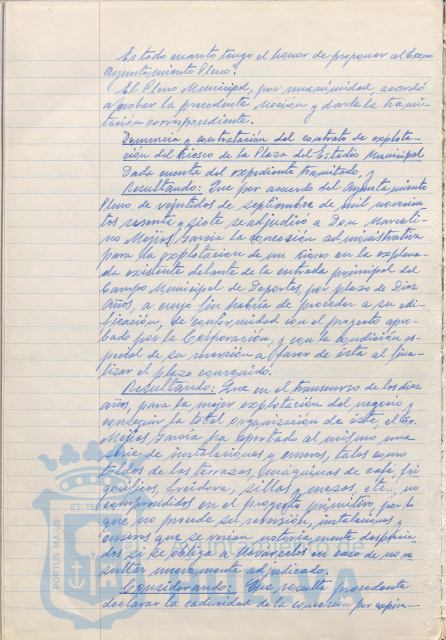 Es todo cuanto tengo el honor de proponer al Excmo
Ayuntamiento Pleno."
El Pleno Municipal, por unanimidad, acordó
aprobar la precedente Moción y darle la trami-
tación correspondiente.
Denuncia y contratación del contrato de explota-
ción del Kiosco de la Plaza del Estadio Municipal
Dada cuenta del expediente tramitado, y
Resultando: Que por acuerdo del Ayuntamiento
Pleno, de veintidos de septiembre de mil novecien-
tos sesenta y siete se adjudicó a Don Marceli-
no Mejías García la concesión administrativa
para la explotación de un Kiosco en la explana-
da existente delante de la entrada principal del
Campo Municipal de Deportes, por plazo de Diez
Años, a cuyo fin habría de proceder a su edi-
ficación, de conformidad con el proyecto apro-
bado por la Corporación, y con la condición es-
pecial de su reversión a favor de ésta al fina-
lizar el plazo convenido.
Resultando: Que en el transcurso de los diez
años, para la mejor explotación del negocio y
conseguir la total organización de éste, el Sr.
Mejías García ha aportado al mismo una
serie de instalaciones y enseres, tales como
toldos de las terrazas, máquinas de café, fri-
goríficos, freidora, sillas y mesas, etc., no
comprendidos en el proyecto primitivo, por lo
que no procede su reversión, instalaciones y
enseres que se verían notoriamente desprecia-
dos si se obliga a llevárselos en caso de no re-
sultar nuevamente adjudicado.
Considerando: Que resulta procedente
declarar la caducidad de la concesión por expira-
PORTUS MARIS
ET TE